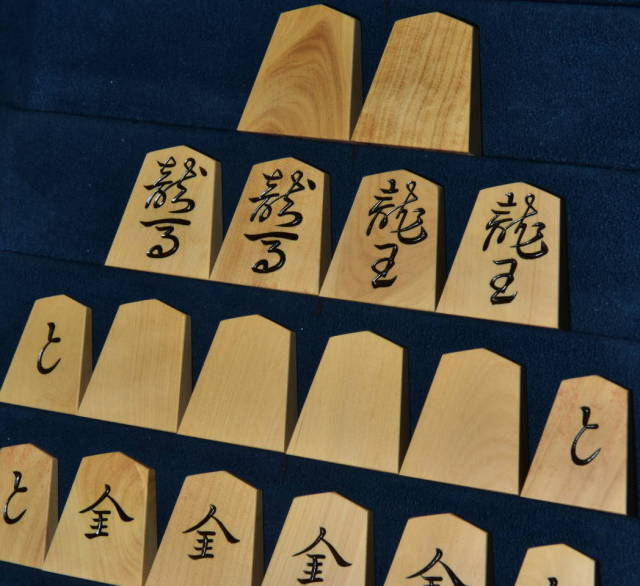 龍馬
龍馬
龍王
龍王
と
と
と
金
金
金
金